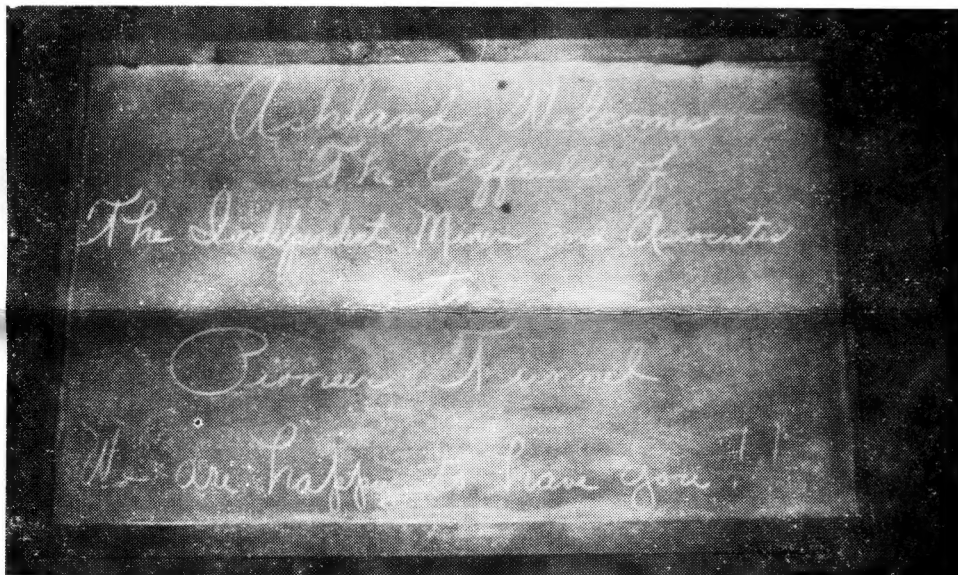 Ashland Welcomes
The Officials of
The Independent Miners and Associates
to
Pioneer Tunnel
We are happy to have you!!